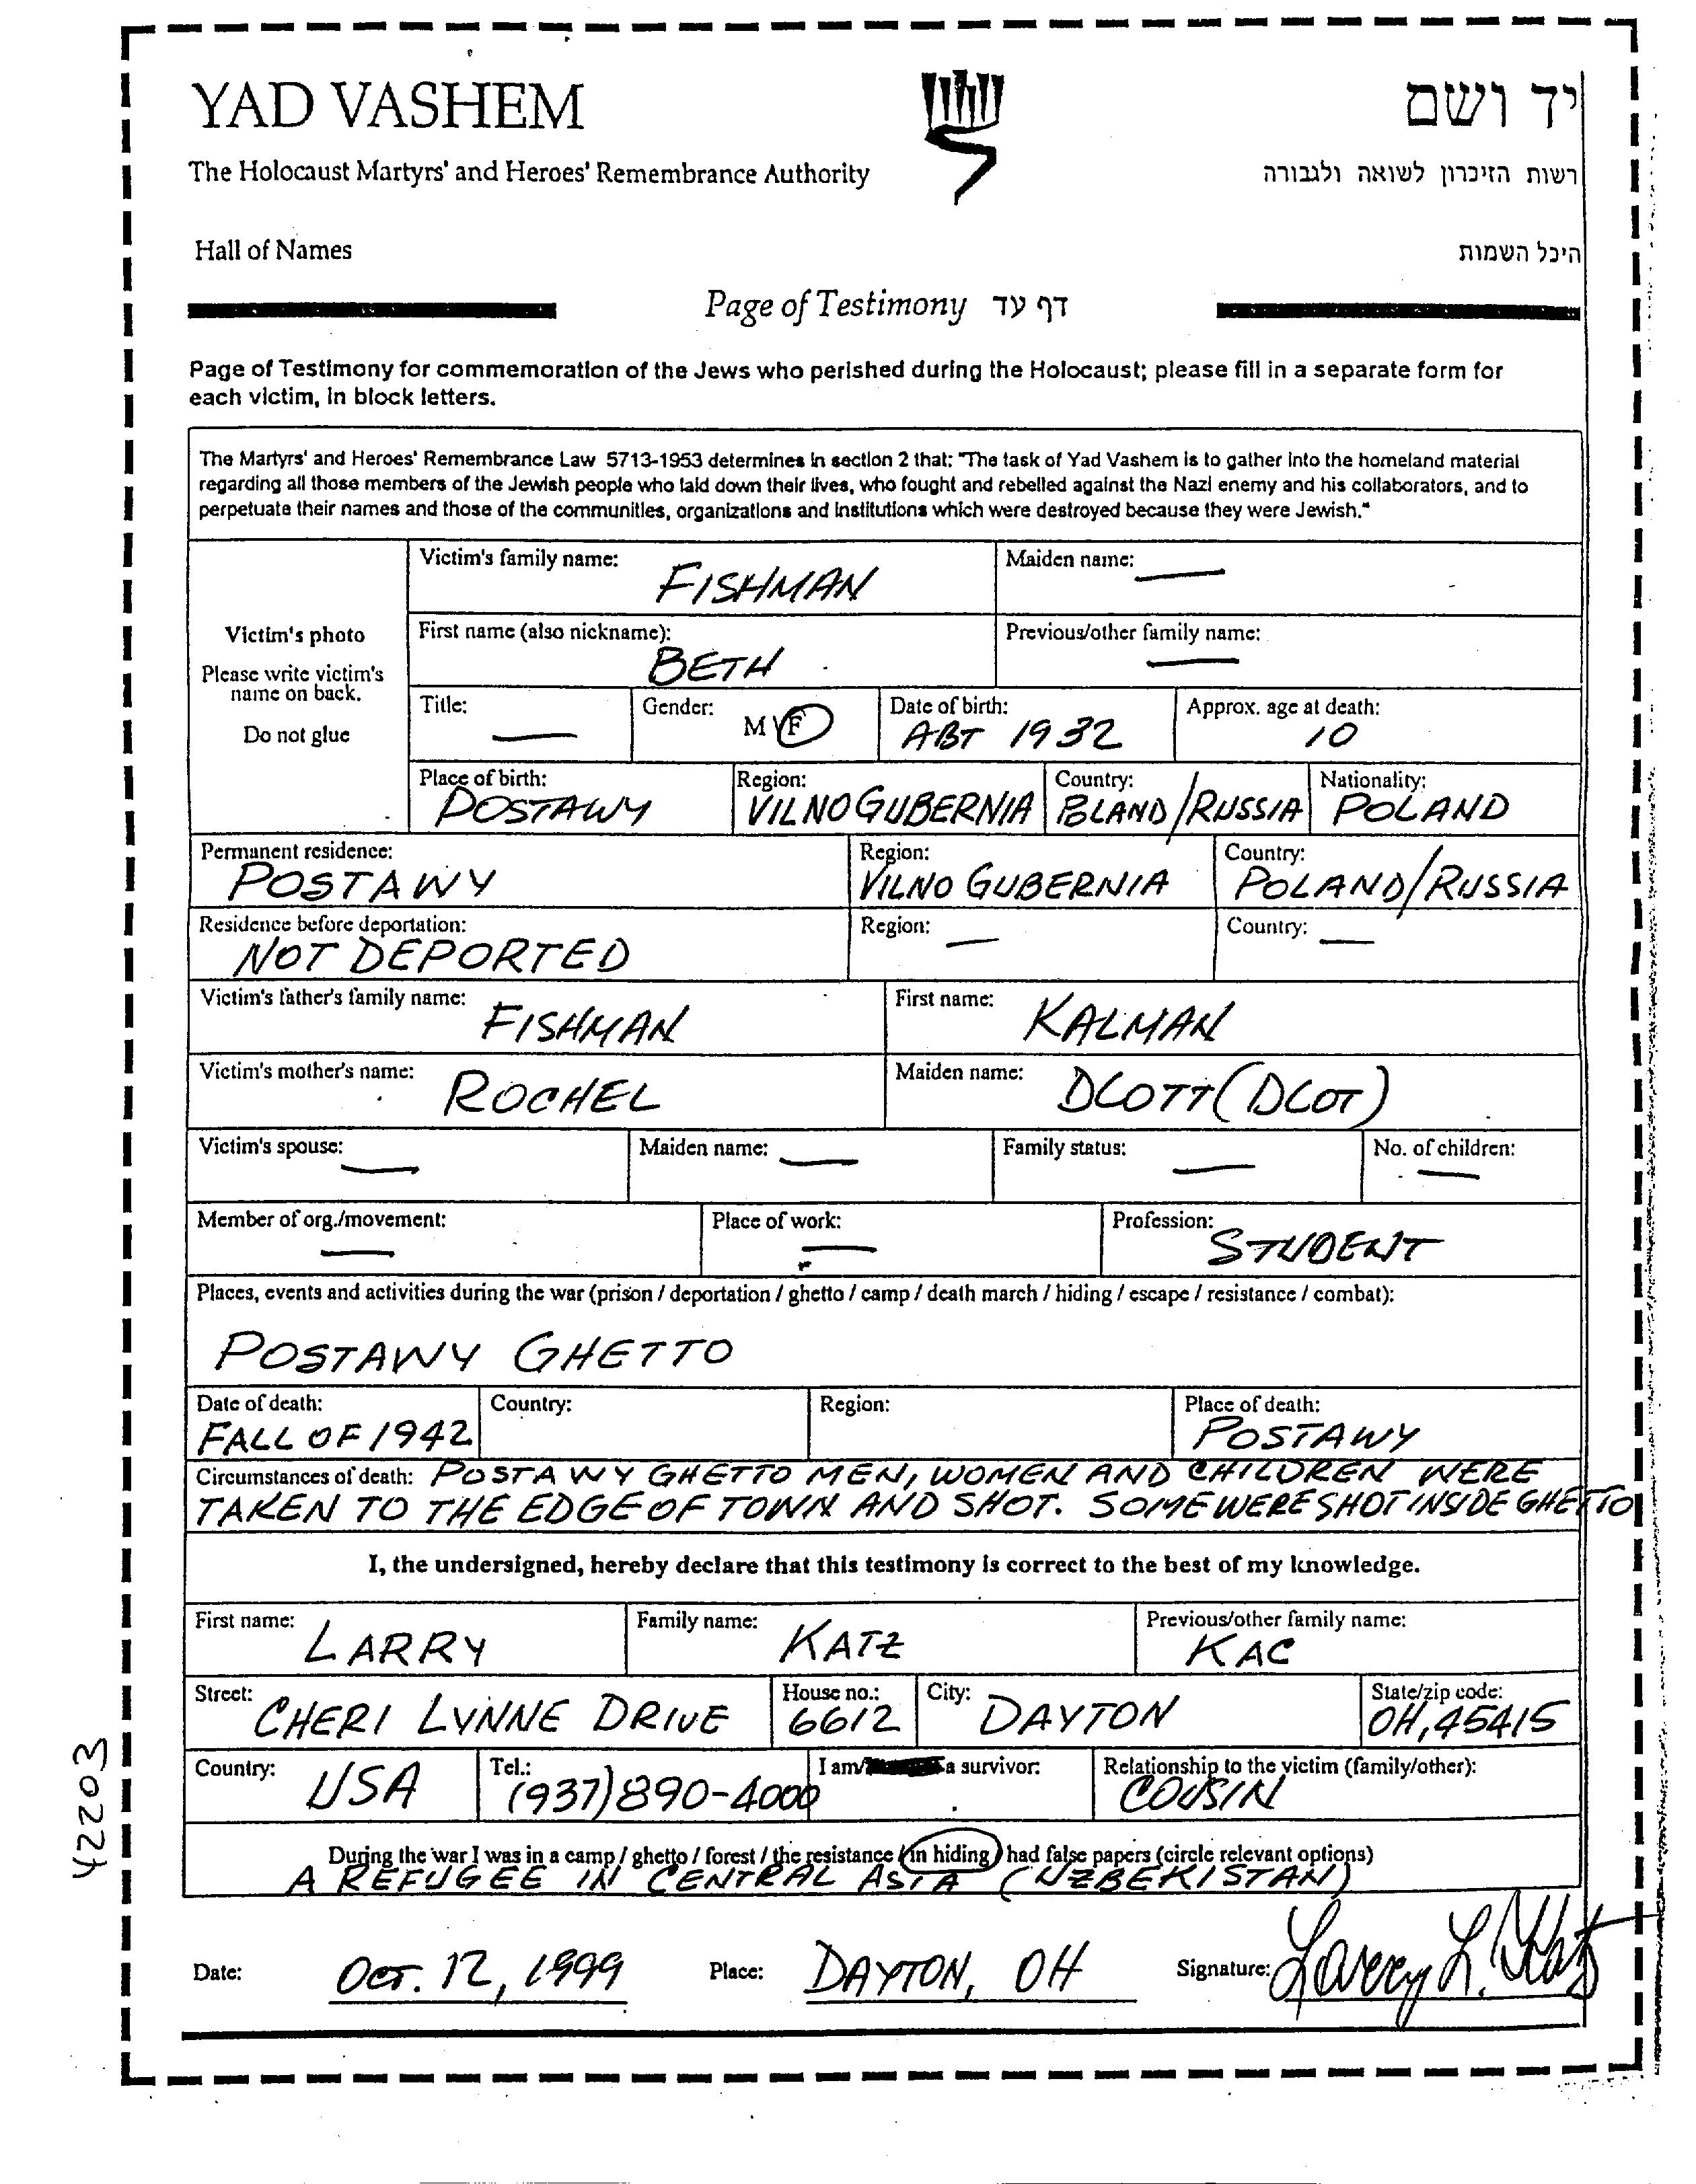 YAD VASHEM יד ושם
The Holocaust Martyrs' and Heroes' Remembrance Authority רשות הזיכרון לשואה ולגבורה
Hall of Names היכל השמות
Page of Testimony דף עד
Page of Testimony for commemoration of the Jews who perished during the Holocaust; please fill in a separate form for
each victim, in block letters.
The Martyrs' and Heroes' Remembrance Law 5713-1953 determines in section 2 that: "The task of Yad Vashem is to gather into the homeland material
regarding all those members of the Jewish people who laid down their lives, who fought and rebelled against the Nazi enemy and his collaborators, and to
perpetuate their names and those of the communities, organizations and institutions which were destroyed because they were Jewish."
Victim's photo
Please write victim's
name on back.
Do not glue
Victim's family name: FISHMAN Maiden name: —
First name (also nickname): BETH Previous/other family name: —
Title: — Gender: M / F Date of birth: ABT 1932 Approx. age at death: 10
Place of birth: POSTAWY Region: VILNO GUBERNIA Country: POLAND/RUSSIA Nationality: POLAND
Permanent residence: POSTAWY Region: VILNO GUBERNIA Country: POLAND/RUSSIA
Residence before deportation: NOT DEPORTED Region: — Country: —
Victim's father's family name: FISHMAN First name: KALMAN
Victim's mother's name: ROCHEL Maiden name: DLOTT (DLOT)
Victim's spouse: — Maiden name: — Family status: — No. of children: —
Member of org./movement: — Place of work: — Profession: STUDENT
Places, events and activities during the war (prison / deportation / ghetto / camp / death march / hiding / escape / resistance / combat):
POSTAWY GHETTO
Date of death: FALL OF 1942 Country: Region: Place of death: POSTAWY
Circumstances of death: POSTAWY GHETTO MEN, WOMEN AND CHILDREN WERE
TAKEN TO THE EDGE OF TOWN AND SHOT. SOME WERE SHOT INSIDE GHETTO
I, the undersigned, hereby declare that this testimony is correct to the best of my knowledge.
First name: LARRY Family name: KATZ Previous/other family name: KAC
Street: CHERI LYNNE DRIVE House no.: 6612 City: DAYTON State/zip code: OH, 45415
Country: USA Tel.: (937) 890-4000 I am/ a survivor: Relationship to the victim (family/other): COUSIN
During the war I was in a camp / ghetto / forest / the resistance / in hiding / had false papers (circle relevant options)
A REFUGEE IN CENTRAL ASIA (UZBEKISTAN)
Date: OCT. 12, 1999 Place: DAYTON, OH Signature: Larry L. Katz
42203